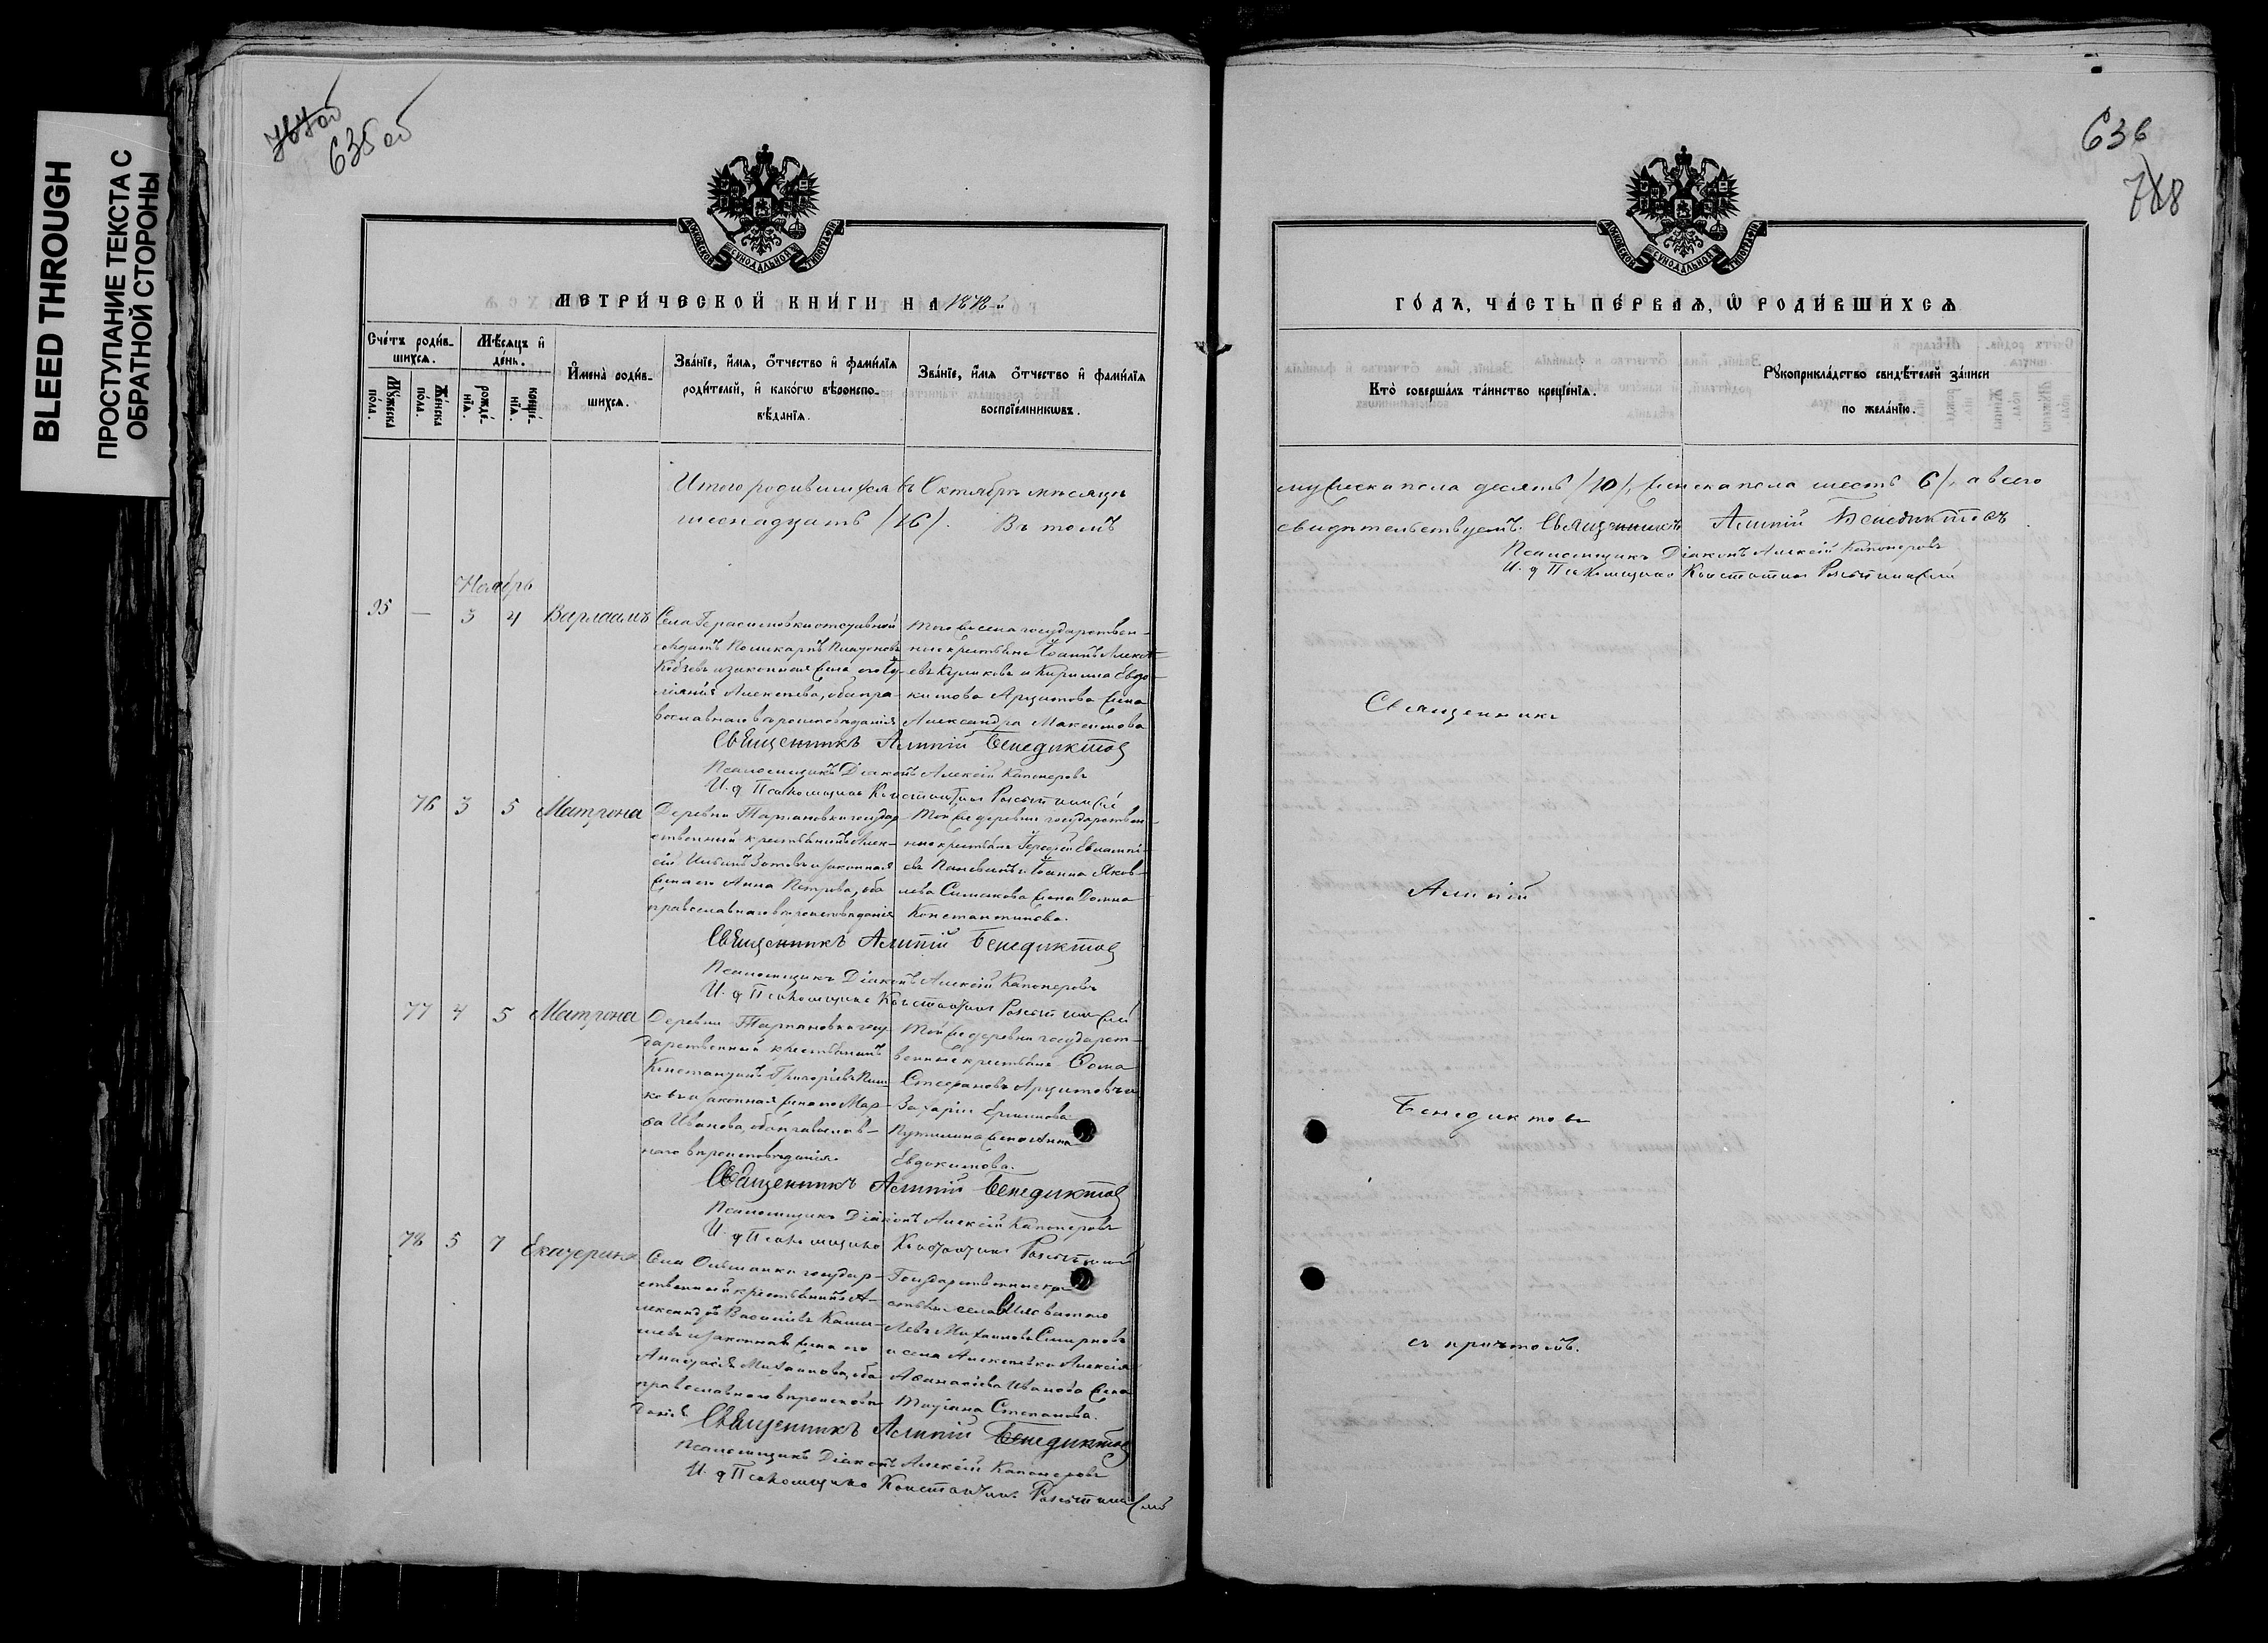 BLEED THROUGH
ПРОСТУПАНИЕ ТЕКСТА С
ОБРАТНОЙ СТОРОНЫ
635 об
636
МОСКОВСКОЙ СѴНОДАЛЬНОЙ ТИПОГРАФІИ
МЕТРИ́ЧЕСКОЙ КНИ́ГИ НА 1878-й
Сче́тъ роди́в-
шихсѧ.
Мꙋ́жеска по́ла.
Же́нска по́ла.
Мѣ́сѧцъ и҆
де́нь.
рожде́-
нїѧ.
креще́-
нїѧ.
И҆мена̀ роди́в-
шихсѧ.
Зва́нїе, и҆́мѧ, ѻ҆́тчество и҆ фами́лїѧ
роди́телей, и҆ како́гѡ вѣроиспо-
вѣ́данїѧ.
Зва́нїе, и҆́мѧ ѻ҆́тчество и҆ фами́лїѧ
воспрїе́мникѡвъ.
Итого родившихся въ Октябрѣ мѣсяцѣ
шеснадцать /16/. Въ томъ
Ноябрь
95 — 3 4 Варлаамъ
Села Герасимовки отставной
солдатъ Поликарпъ Платоновъ
и законная жена его Ев-
Алексѣева, оба пра-
вославнаго вѣроисповѣданія
Того же села государствен-
ные крестьяне Іоаннъ Алексѣ-
евъ Куликовъ и Кирилла Евдо-
кимова Арцитова жена
Александра Максимова
Священникъ Алипій Бенедиктовъ
Псаломщикъ Діаконъ Алексій Капонеровъ
И. д Псаломщика Константинъ
76 3 5 Матрона
Деревни государ-
ственный крестьянинъ Алек-
сій Ильинъ Зотовъ и законная
жена его Анна Петрова, оба
православнаго вѣроисповѣданія
Той же деревни государствен-
ные крестьяне Георгій Евлампі-
евъ и Іоанна Яков-
лева Симакова жена Домна
Константинова.
Священникъ Алипій Бенедиктовъ
Псаломщикъ Діаконъ Алексій Капонеровъ
И. д Псаломщика Константинъ
77 4 5 Матрона
Деревни госу-
дарственный крестьянинъ
Константинъ Григорьевъ
и законная жена его Мар-
ѳа Иванова, оба православ-
наго вѣроисповѣданія.
Той же деревни государст-
венные крестьяне Ѳома
Стефановъ Арцитовъ и
Захаріи
жена Анна
Евдокимова.
Священникъ Алипій Бенедиктовъ
Псаломщикъ Діаконъ Алексій Капонеровъ
И. д Псаломщика Константинъ
78 5 7 Екатерина
Села Ольшанки государ-
ственный крестьянинъ А-
лександръ Васильевъ
и законная жена его
Анастасія Михайлова, оба
православнаго вѣроисповѣ-
данія
Государственные кре-
стьяне села
Левъ Михайловъ Смирновъ
и села Алексѣевки Алексія
Аѳанасьева Иванова жена
Татіана Степанова.
Священникъ Алипій Бенедиктовъ
Псаломщикъ Діаконъ Алексій Капонеровъ
И. д Псаломщика Константинъ
МОСКОВСКОЙ СѴНОДАЛЬНОЙ ТИПОГРАФІИ
ГО́ДЪ, ЧА́СТЬ ПЕ́РВАѦ, Ѡ҆ РОДИ́ВШИХСѦ
Кто̀ соверша́лъ та́инство креще́нїѧ.
Рꙋкоприкла́дство свидѣ́телей за́писи
по жела́нїю.
мужеска пола десять /10/, женска пола шесть 6/, а всего
свидѣтельствуемъ: Священникъ Алипій Бенедиктовъ
Псаломщикъ Діаконъ Алексій Капонеровъ
И. д Псаломщика Константинъ
Священникъ
Алипій
Бенедиктовъ
съ причтомъ.